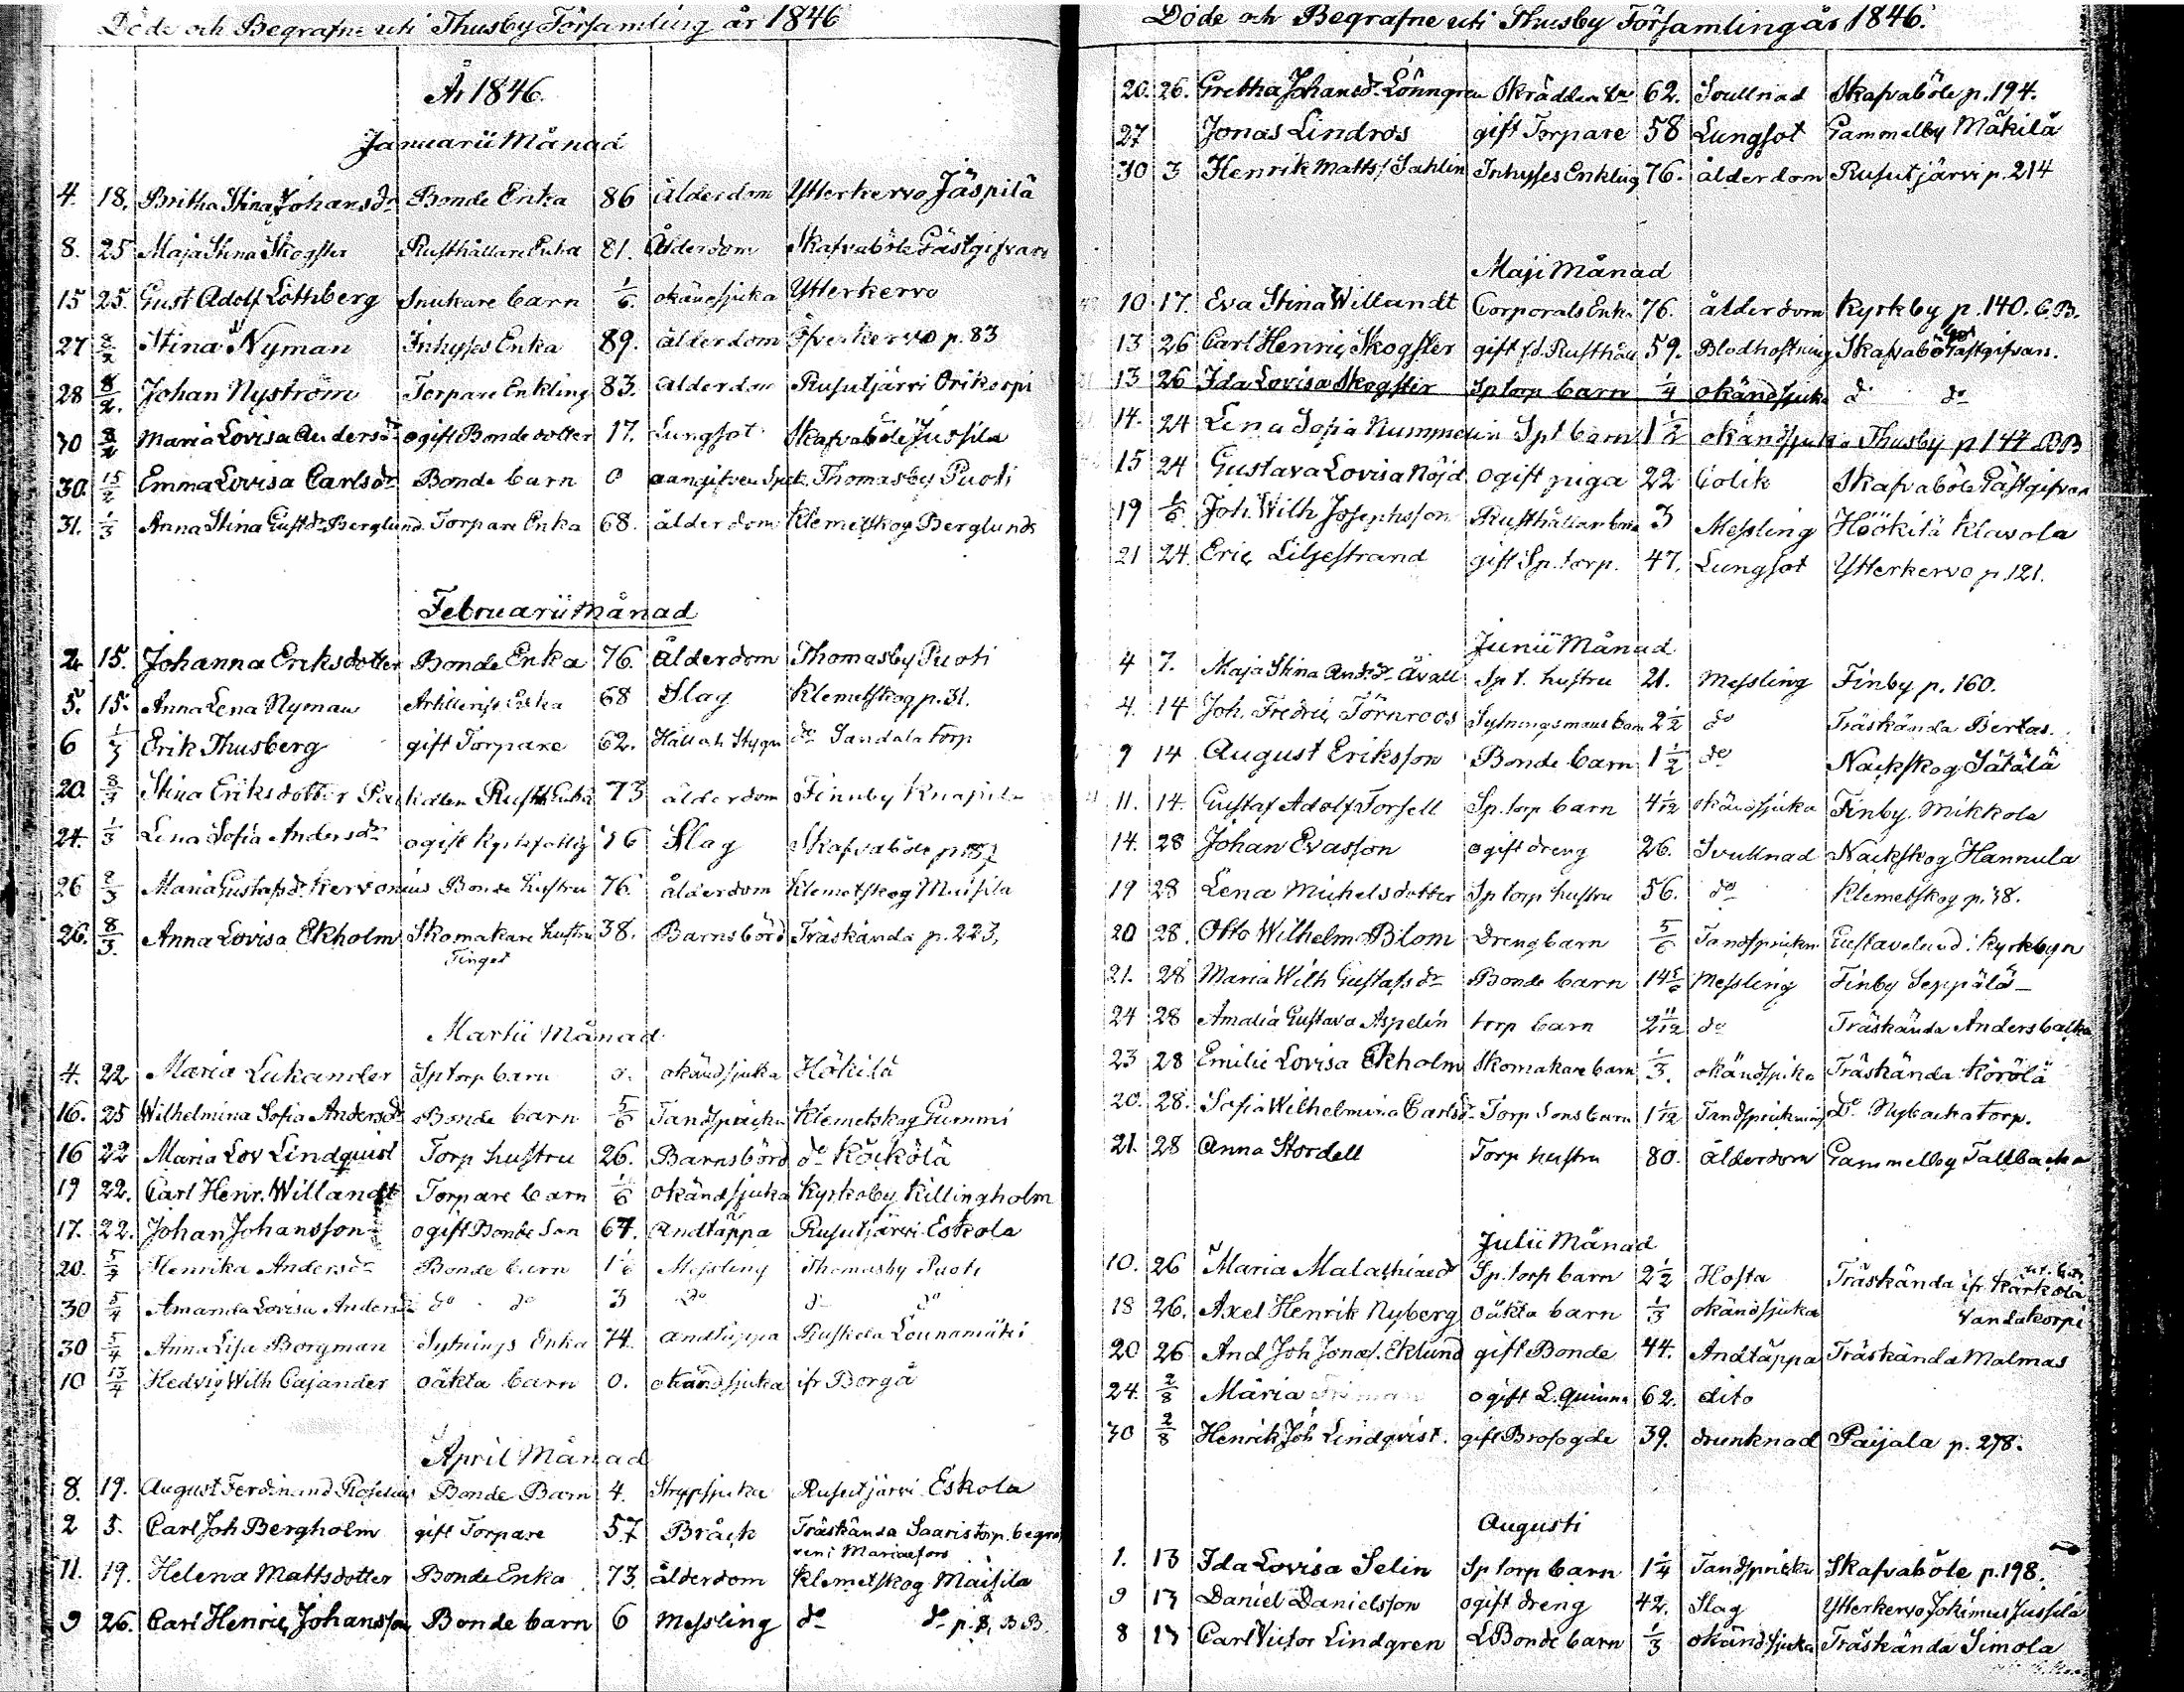 Döde och Begrafne uti Thusby Församling år 1846
År 1846.
Januarii Månad
4. 18. Britha Stina Johansdr Bonde Enka 86 Ålderdom Ytterkervo Jäspilä
8. 25 Maja Stina Skogster Rusthållare Enka 81. Ålderdom Skafvaböle Gästgifvars
15 25. Gust Adolf Löthberg Snickare barn 1/6. okändsjuka Ytterkervo
27 8/2 Stina Nyman Inhyses Enka 89. ålderdom Öfverkervo p. 83
28 8/2. Johan Nyström Torpare Enkling 83. ålderdom Rusutjärvi Orikorpi
30 8/2 Maria Lovisa Andersdr ogift Bondedotter 17. Lungsot Skafvaböle Jussila
30. 15/2 Emma Lovisa Carlsdr Bonde barn 0 oangifven Thomasby Puoti
31. 1/3 Anna Stina Gustdr Berglund. Torpare Enka 68. ålderdom Klemetskog Berglunds
Februarii Månad
2. 15. Johanna Eriksdotter Bonde Enka 76. Ålderdom Thomasby Puoti
5. 15. Anna Lena Nyman Artilerist Enka 68 Slag Klemetskog p. 31.
6 1/3 Erik Thusberg gift Torpare 62. Håll och Stygn do Sandala torp
20. 8/3 Stina Eriksdotter Rusth Enka 73 ålderdom Finnby Knapila
24. 1/3 Lena Sofia Andersdr ogift kyrkofattig 76 Slag Skafvaböle
26 8/3 Maria Gustafsdr Kervonius Bonde hustru 76. ålderdom Klemetskog Maisila
26. 8/3. Anna Lovisa Ekholm Skomakare hustru 38. Barnsbörd Träskända p. 223,
Martii Månad
4. 22 Maria Lukander Sptorp barn 0. okändsjuka Hökilä
16. 25 Wilhelmina Sofia Andersdr Bonde barn 5/6 Tandsprickn Klemetskog Gummi
16 22 Maria Lov Lindquist Torp hustru 26. Barnsbörd do Köckölä
19 22. Carl Henr. Willandt Torpare barn 1/6 okändsjuka Kyrkoby Killingholm
17. 22. Johan Johansson ogift Bonde Son 67. andtäppa Rusutjärvi Eskola
20. 5/4 Henrika Andersdr Bonde barn 1 1/6 Messling Thomasby Puoti
30 5/4 Amanda Lovisa Andersdr do do 3 do do do
30 5/4 Anna Lisa Borgman Sytnings Enka 74. andtäppa Ruskela Lounamäki
10 13/4 Hedvig Wilh Cajander oäkta barn 0. okändsjuka ifr Borgå
April Månad
8. 19. August Ferdinand Roselius Bonde Barn 4. Strypsjuka Rusutjärvi Eskola
2 5. Carl Joh Bergholm gift Torpare 57 Bråck Träskända Saaris torp. begraf
ven i Mariæfors
11. 19. Helena Mattsdotter Bonde Enka 73. ålderdom Klemetskog Maisila
9 26. Carl Henric Johansson Bonde barn 6 Messling do do p. 8, BB
Döde och Begrafne uti Thusby Församling år 1846.
20. 26. Gretha Johansdr Lönngren Skräddare 62. Svullnad Skafvaböle p. 194.
27 Jonas Lindros gift Torpare 58 Lungsot Gammelby Mäkilä
30 3 Henrik Matts/Sahlin Inhysses Enkling 76. ålderdom Rusutjärvi p. 214
Maji Månad
10 17. Eva Stina Willundt Corporals Enka 76. ålderdom Kyrkby p. 140. CB.
13 26 Carl Henric Skogster gift fd. Rusthåll 59. Blodhostning Skafvaböle Gästgifvars.
13 26 Ida Lovisa Skogster Sptorp barn 1/4 okändsjuka do do
14. 24 Lena Sofia Nummelin Spt barn 1 1/2 okändsjuka Thusby p 144 BB
15 24 Gustava Lovisa Nöjd ogift piga 22 Colik Skafvaböle Gästgifvar
19 1/6 Joh. Wilh Josephsson Rusthållar barn 3 Messling Höökilä Klavola
21 24. Eric Liljestrand gift Sp. torp. 47. Lungsot Ytterkervo p. 121.
Junii Månad
4 7. Maja Stina Andsdr Åvall Spt. hustru 21. Messling Finby p. 160.
4. 14 Joh. Fredric Törnroos Sytningsmans barn 2 1/2 do Träskända Bertas.
9 14 August Eriksson Bonde barn 1 1/2 do Nackskog Sätälä
11. 14. Gustaf Adolf Forsell Sp. torp barn 4 1/12 okändsjuka Finby. Mikkola
14. 28 Johan Evasson ogift dreng 26. Svullnad Nackskog Hannula
19 28 Lena Michelsdotter Sp torp hustru 56. do Klemetskog p. 48.
20 28. Otto Wilhelm Blom Dreng barn 5/6 Tandsprickn Gustavelund i Kyrkbyn
21. 28 Maria Wilh Gustafsdr Bonde barn 14 5/6 Messling Finby Seppälä
24 28 Amalia Gustava Aspelin torp barn 2 11/12 do Träskända Andersbacka
23 28 Emilie Lovisa Ekholm Skomakare barn 1/3. okändsjuka Träskända Körölä
20. 28. Sofia Wilhelmina Carlsdr Torp Sons barn 1 1/12 Tandsprickning do. Nybacka torp.
21. 28 Anna Stordell Torp hustru 80. ålderdom Gammelby Tallbacka
Julii Månad
10. 26 Maria Malachiasdr Sp. torp barn 2 1/2 Hosta Träskända ifr Karkola
18 26. Axel Henrik Nyberg oäkta barn 1/3 okändsjuka Vandakorpi
20 26 And Joh Jonas. Eklund gift Bonde 44. Andtäppa Träskända Malmas
24. 2/8 Maria ogift L. quinna 62. dito
30 2/8 Henrik Joh Lindqvist. gift Brofogde 39. drunknad Paijala p. 278.
Augusti
1. 13 Ida Lovisa Selin Sp torp barn 1 1/4 Tandsprickn Skafvaböle p. 198.
9 13 Daniel Danielsson ogift dreng 42. Slag Ytterkervo Jokimies Jussila
8 13 Carl Victor Lindgren L Bonde barn 1/3 okändsjuka Träskända Simola